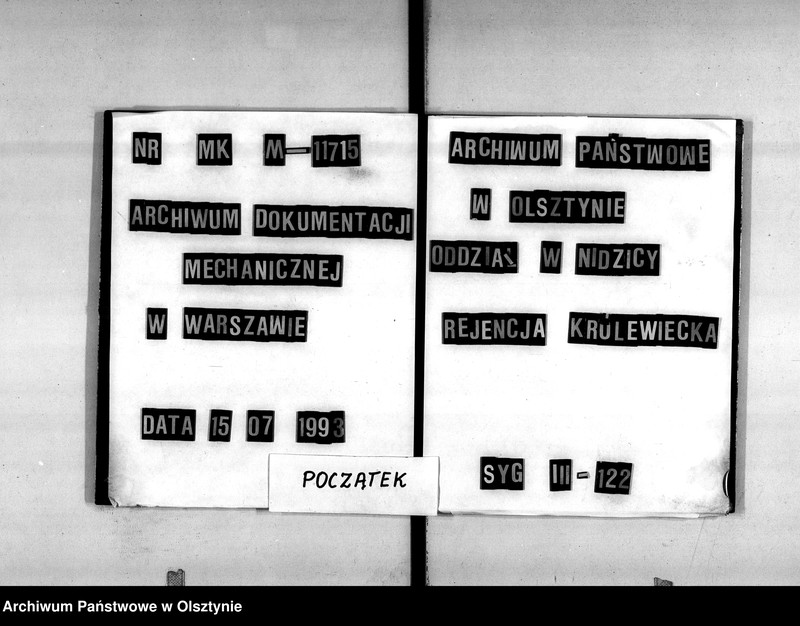 NR MK M-11715
ARCHIWUM DOKUMENTACJI
MECHANICZNEJ
W WARSZAWIE
DATA 15 07 1993
POCZĄTEK
ARCHIWUM PAŃSTWOWE
W OLSZTYNIE
ODDZIAŁ W NIDZICY
REJENCJA KRÓLEWIECKA
SYG III-122
Archiwum Państwowe w Olsztynie